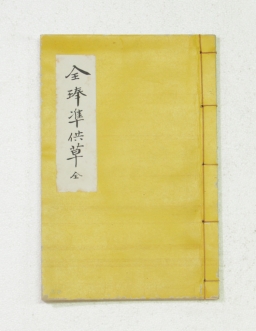 全琫準供草 全